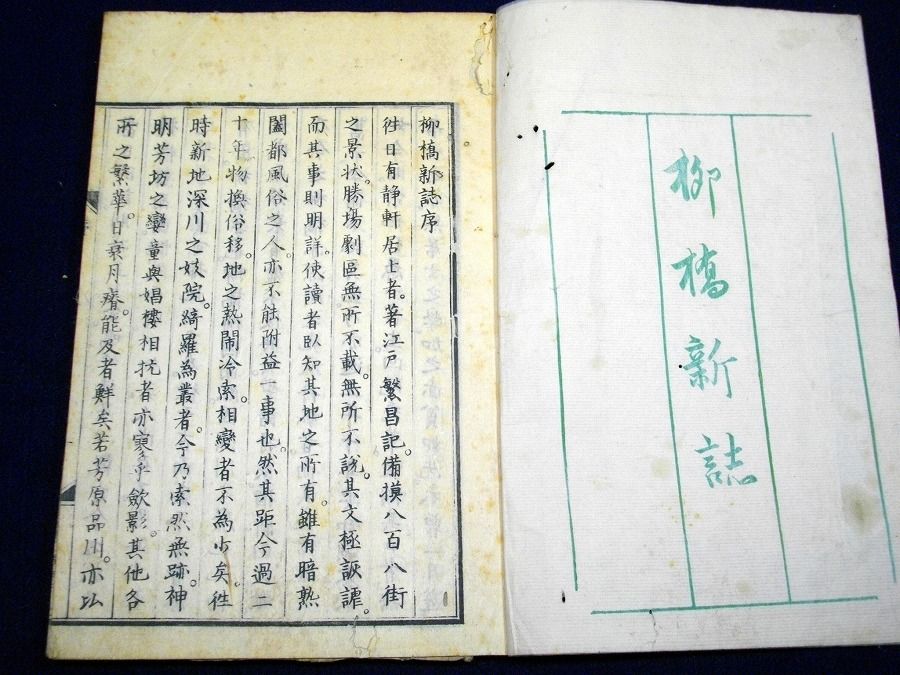 柳橋新誌
柳橋新誌序
徃日有静軒居士者。著江戸繁昌記。備摸八百八街
之景状。勝場劇區無所不載。無所不説。其文極詼謔。
而其事則明詳。使讀者臥知其地之所有。雖有暗熟
闔都風俗之人。亦不能附益一事也。然其距今過二
十年。物換俗移。地之熱鬧冷索相變者不為少矣。徃
時新地深川之妓院。綺羅為叢者。今乃索然無跡。神
明芳坊之孌童與娼樓相抗者亦寥乎歛影。其他各
所之繁華。日衰月瘠。能及者鮮矣。若芳原品川。亦以